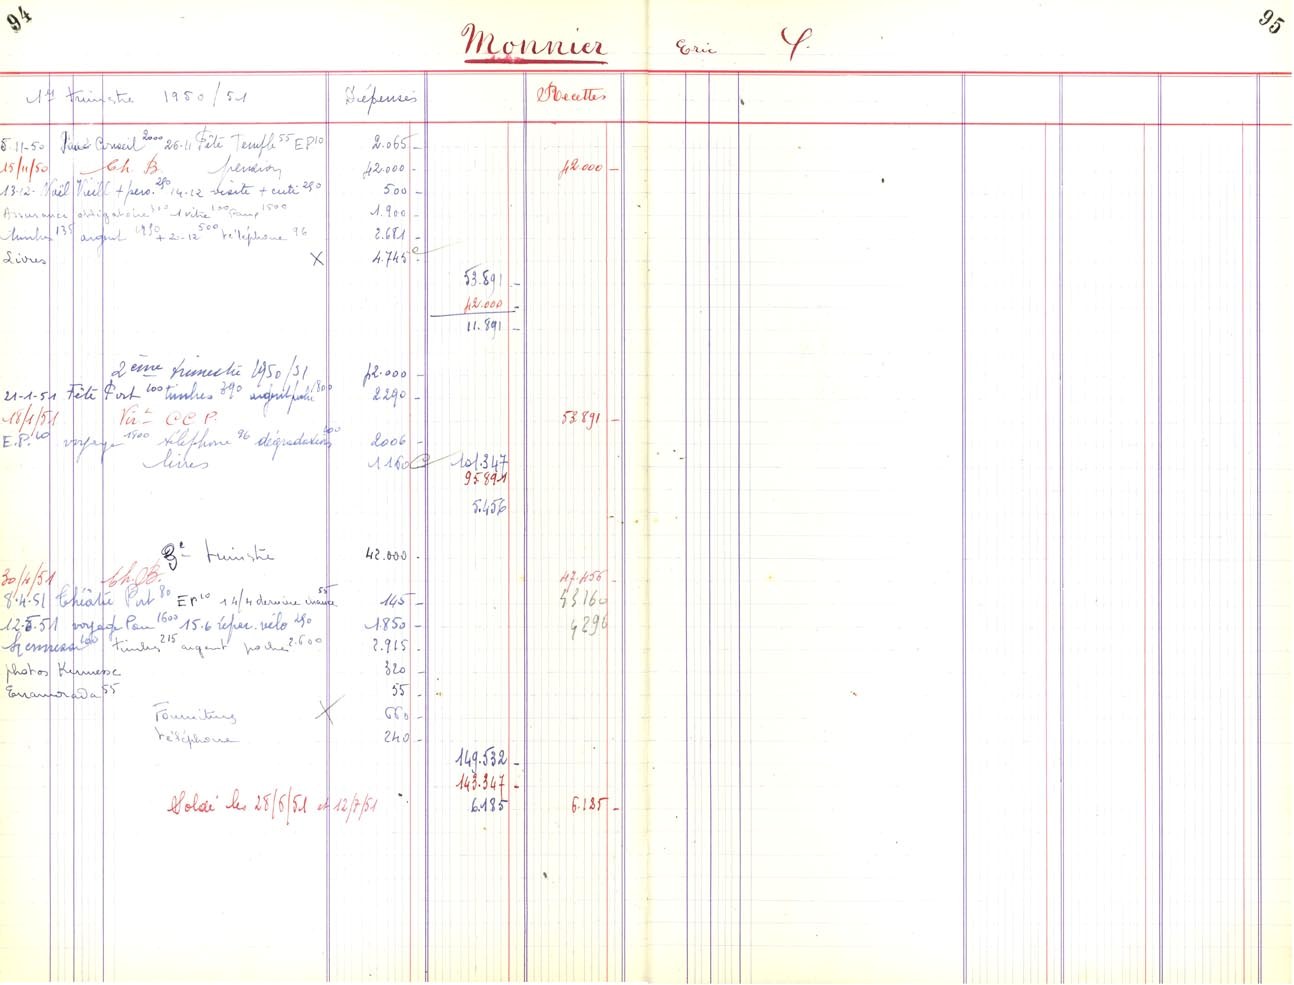 94
95
Monnier Eric
1er trimestre 1950/51 Dépenses Recettes
5-11-50 Conseil 2000 26-11 Fête Temple 55 EP 10 2.065
15/11/50 Ch. B. pension 42.000 42.000
13-12- Noël Vieill + 290 14-12 visite + cuti 290 500
Assurance obligatoire 1 vitre 100 1500 1.900
timbres 135 argent 1950 + 2-12 500 téléphone 96 2.681
Livres X 4.745
53.891
42.000
11.891
2ème trimestre 1950/51 42.000
21-1-51 Fête Port 100 timbres 390 argent poche 1800 2290
18/1/51 Virt CCP. 53891
E.P. 10 voyage 1500 téléphone 96 dégradations 400 2006
livres 1160 101.347
95891
5.456
3e trimestre 42.000
30/4/51 Ch. B. 47.456
8-4-51 Théâtre Port 80 EP 10 14/4 dernière chance 55 145 43160
12-5-51 voyage Pau 1600 15-6 répar. vélo 250 1.850 4296
Kermesse 100 timbres 215 argent poche 2.600 2.915
photos Kermesse 320
Enamorada 55 55
Fournitures X 660
téléphone 240
149.532
143.347
Soldé les 28/6/51 et 12/7/51 6.185 6.185